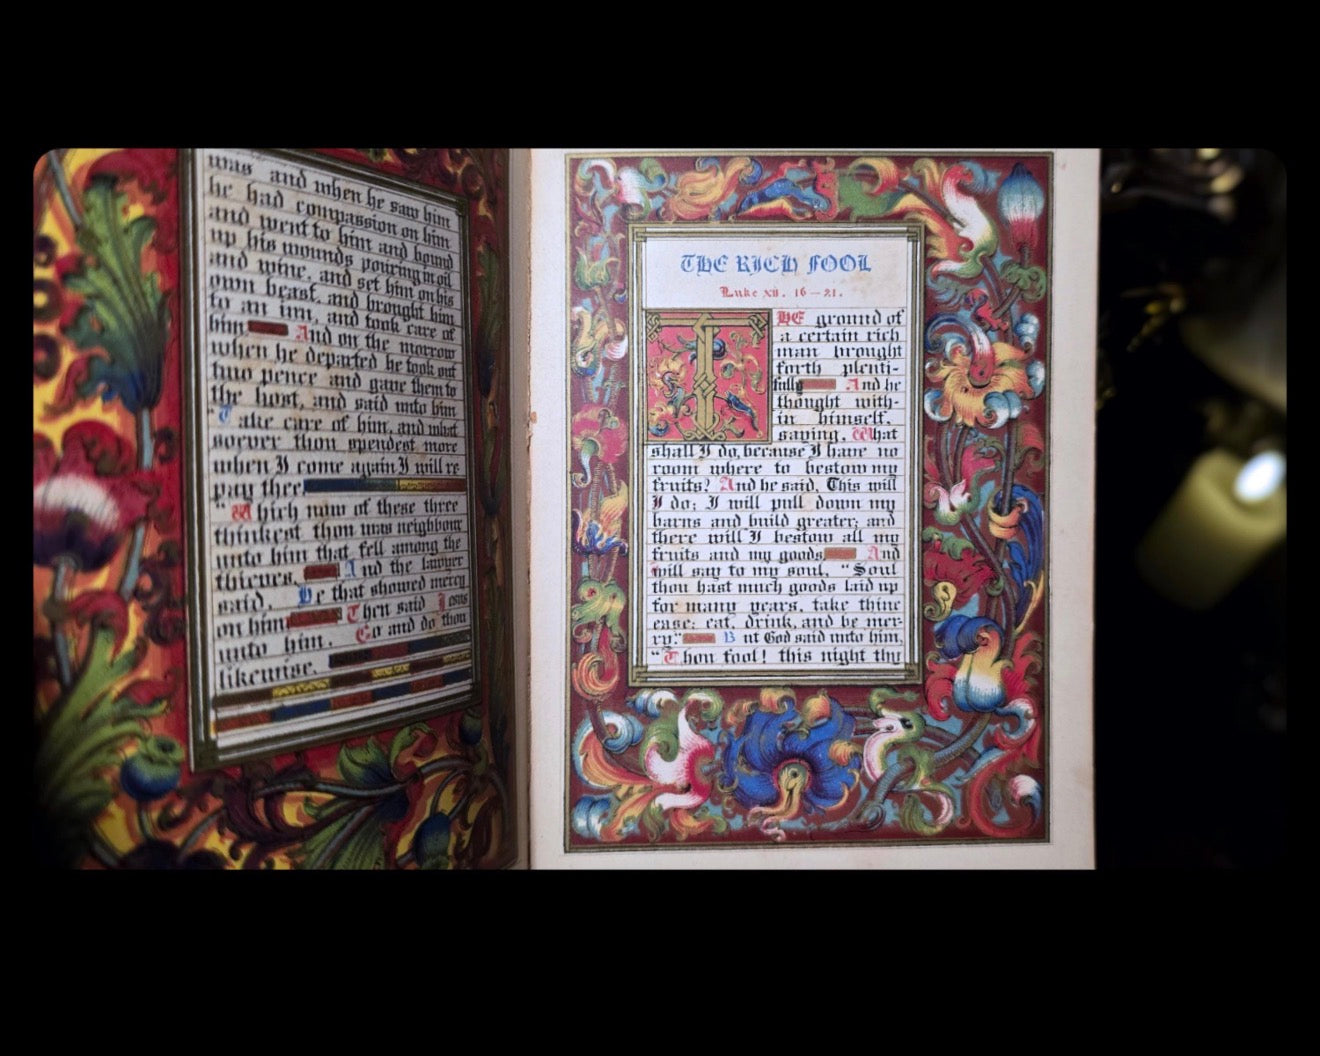 was and when he saw him
he had compassion on him
and went to him and bound
up his wounds pouring in oil
and wine, and set him on his
own beast, and brought him
to an inn, and took care of
him And on the morrow
when he departed he took out
two pence and gave them to
the host, and said unto him
"Take care of him, and what
soever thou spendest more
when I come again I will re
pay thee
"Which now of these three
thinkest thou was neighbour
unto him that fell among the
thieves. And the lawyer
said. He that showed mercy
on him Then said Jesus
unto him. Go and do thou
likewise.
THE RICH FOOL
Luke XII. 16-21.
THE ground of
a certain rich
man brought
forth plenti-
fully And he
thought with-
in himself,
saying, What
shall I do, because I have no
room where to bestow my
fruits? And he said, This will
I do; I will pull down my
barns and build greater; and
there will I bestow all my
fruits and my goods And
will say to my soul, "Soul
thou hast much goods laid up
for many years, take thine
ease; eat, drink, and be mer-
ry." But God said unto him,
"Thou fool! this night thy